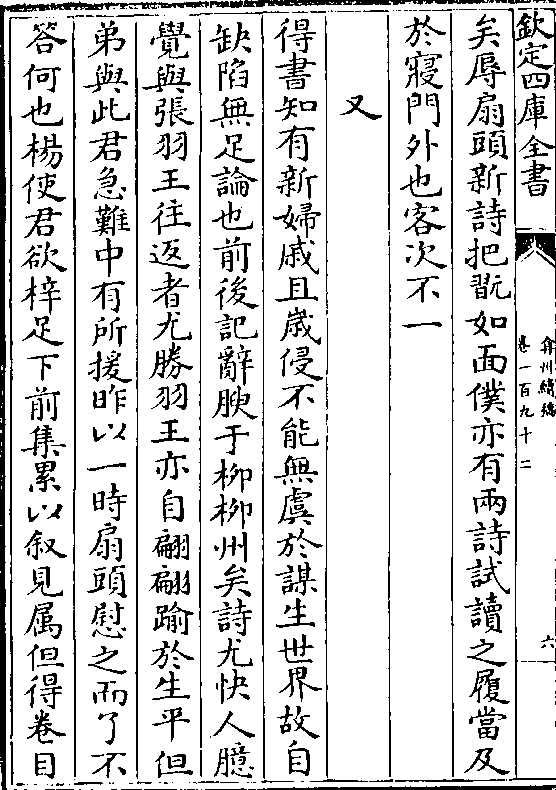 欽定四庫全書
弇州續稿
卷一百九十二
六
矣辱扇頭新詩把翫如面僕亦有兩詩試讀之履當及
於寢門外也客次不一
又
得書知有新婦戚且歳侵不能無虞於謀生世界故自
缺陷無足論也前後記辭腴于柳柳州矣詩尤快人臆
覺與張羽王往返者尤勝羽王亦自翩翩踰於生平但
弟與此君急難中有所援昨以一時扇頭慰之而了不
答何也楊使君欲梓足下前集累以叙見属但得卷目